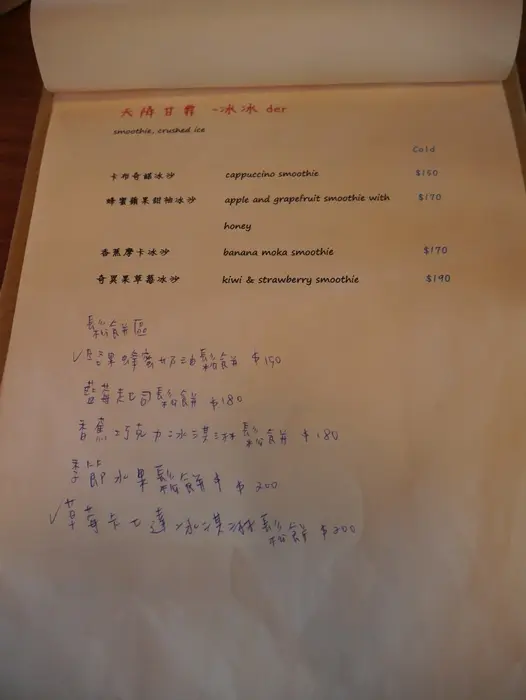 天降甘霖 -冰冰 der
smoothie, crushed ice
Cold
卡布奇諾冰沙 cappuccino smoothie $150
蜂蜜蘋果甜柚冰沙 apple and grapefruit smoothie with $170
honey
香蕉摩卡冰沙 banana moka smoothie $170
奇異果草莓冰沙 kiwi & strawberry smoothie $190
鬆餅區
✓堅果蜂蜜奶油鬆餅 $150
藍莓起司鬆餅 $180
香蕉巧克力冰淇淋鬆餅 $180
季節水果鬆餅 $200
✓草莓卡士達冰淇淋鬆餅 $200